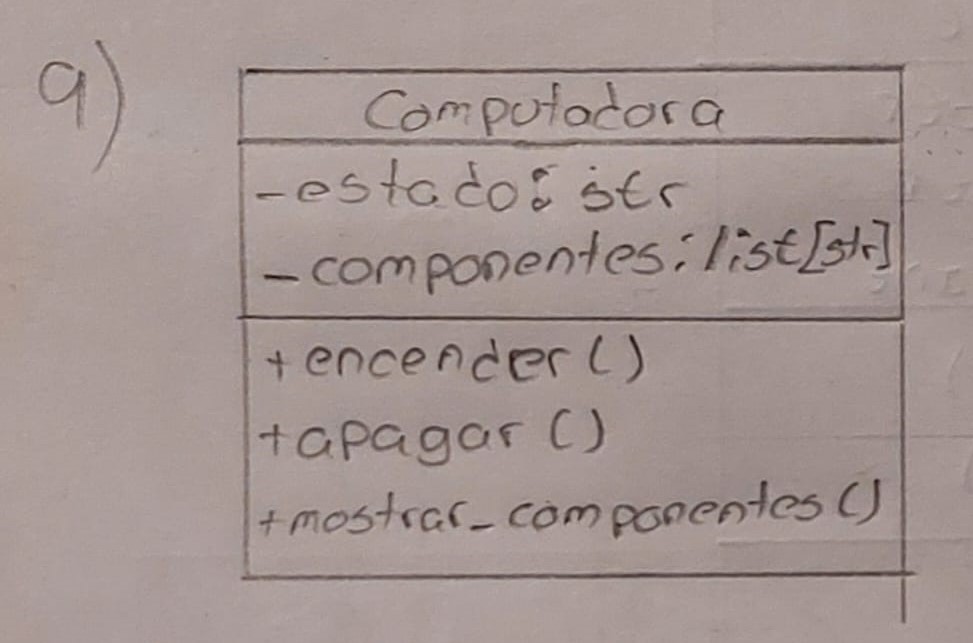 9)
Computadora
-estado: str
-componentes: list[str]
+encender()
+apagar()
+mostrar_componentes()